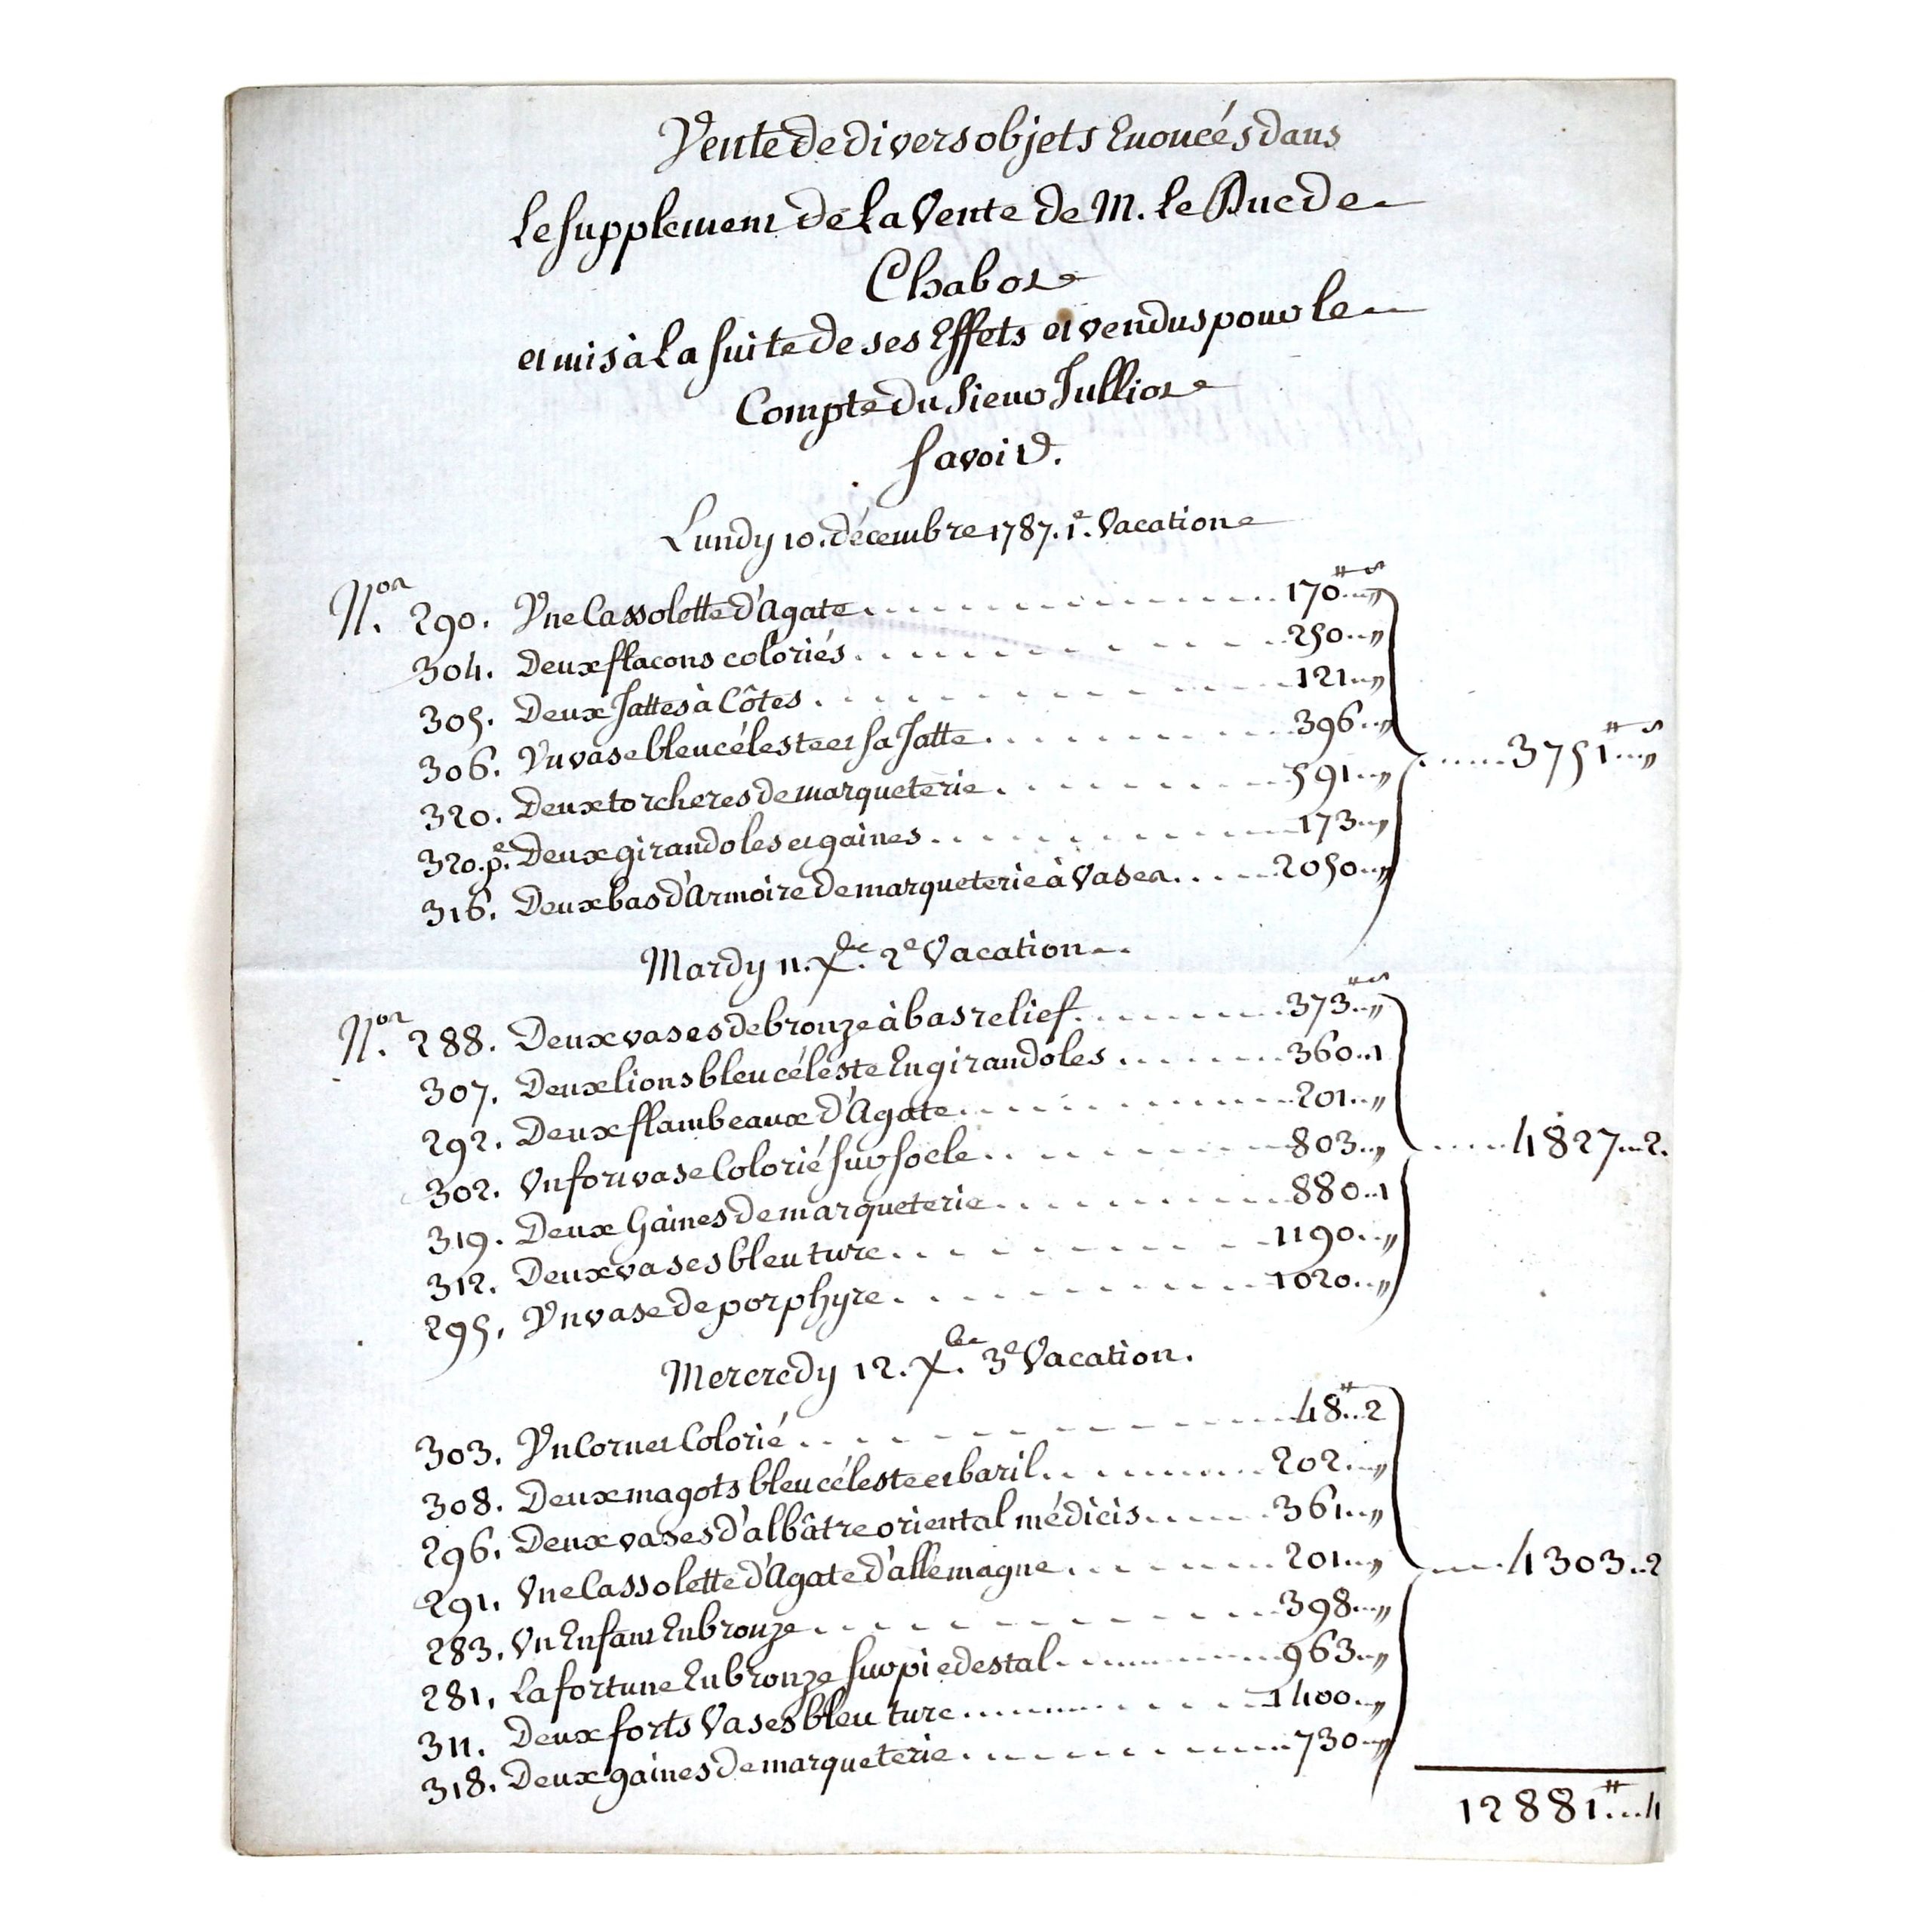 Vente de divers objets Enoncés dans
Le supplement de La Vente de M. Le Duc de
Chabot
et mis à La suite de ses Effets et vendus pour le
Compte du Sieur Julliot
Savoir.
Lundy 10. décembre 1787. 1e. Vacation
Nos. 290. Une Cassolette d'Agate 170.
304. Deux flacons coloriés 250.
305. Deux Jattes à Côtes 121.
306. Un vase bleu céleste et sa Jatte 396.
320. Deux torcheres de marqueterie 591.
320. pe. Deux girandoles et gaines 173.
316. Deux bas d'Armoire de marqueterie à Vases 2050.
3751.
Mardy 11. Xbre. 2e Vacation
Nos. 288. Deux vases de bronze à bas relief 373.
307. Deux lions bleu céleste En girandoles 360..1
292. Deux flambeaux d'Agate 201.
302. Un fort vase Colorié sur socle 803.
319. Deux Gaines de marqueterie 880..1
312. Deux vases bleu turc 1190.
295. Un vase de porphyre 1020.
4827..2.
Mercredy 12. Xbre. 3e Vacation.
303. Un Cornet Colorié 48..2
308. Deux magots bleu céleste et baril 202.
296. Deux vases d'albâtre oriental médicis 361.
291. Une Cassolette d'Agate d'allemagne 201.
283. Un Enfant En bronze 398.
281. La fortune En bronze sur piedestal 963.
311. Deux forts Vases bleu turc 1400.
318. Deux gaines de marqueterie 730.
4303..2
12881...4